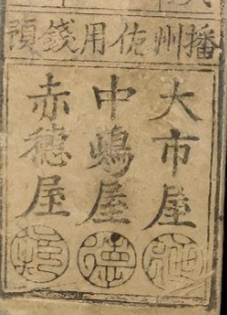 播州佐用錢預
大市屋
中嶋屋
赤穂屋
德